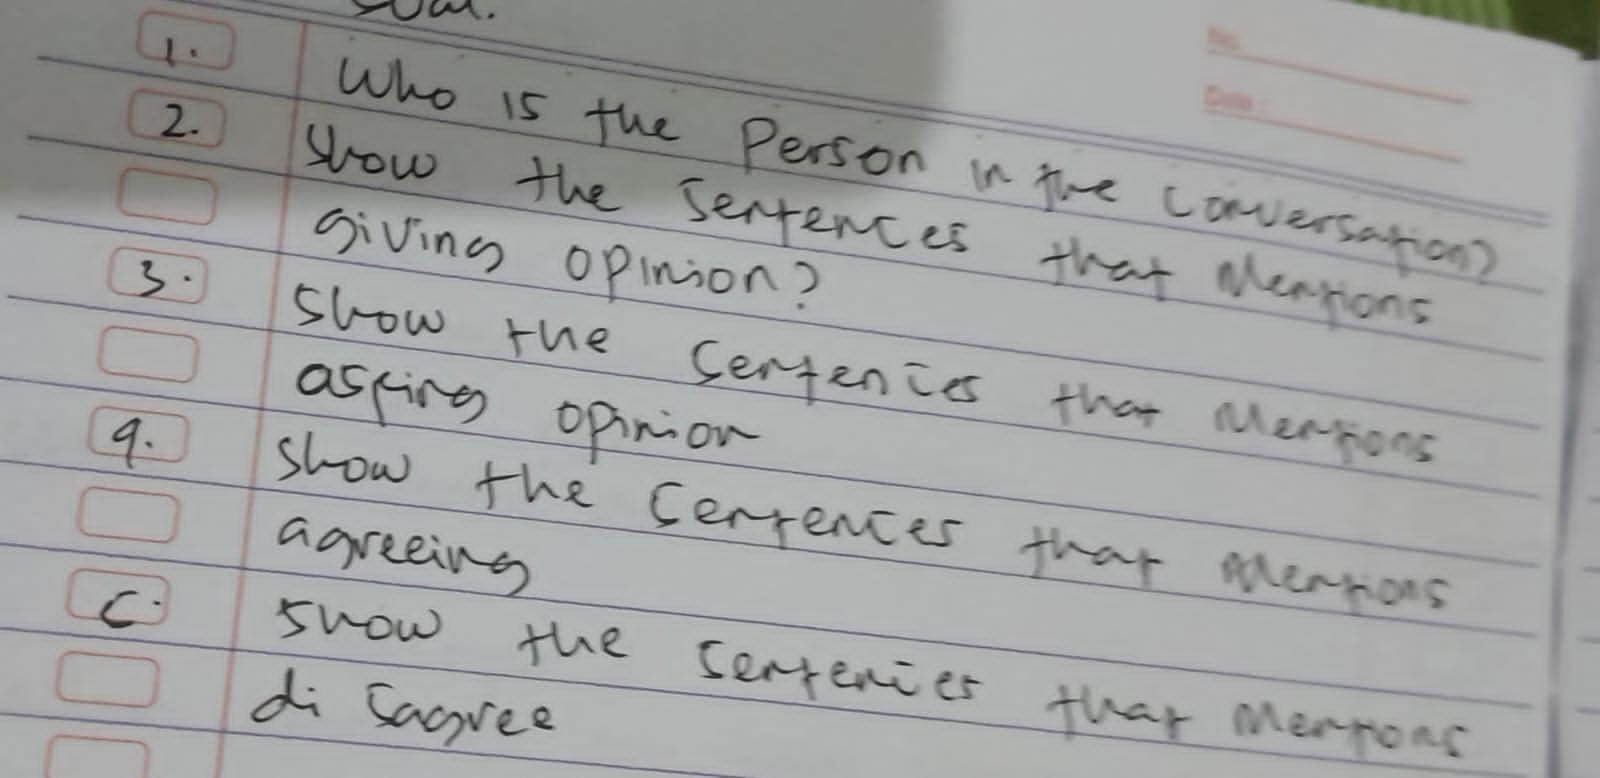 soal.
No.
Date:
1. Who is the Person in the conversation?
2. Show the sentences that Mentions
giving opinion?
3. Show the sentences that Mentions
asking opinion
4. Show the sentences that Mentions
agreeing
5. Show the sentences that Mentions
di sagree